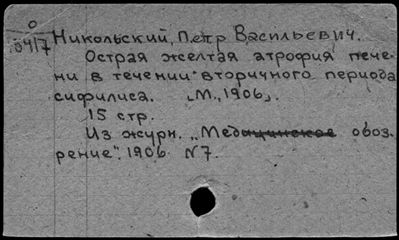 О
04/7 Никольский, Петр Васильевич.
Острая желтая атрофия пече-
ни в течении вторичного периода
сифилиса. [М., 1906].
15 стр.
Из журн. „Медицинское обоз-
рение". 1906 N 7.